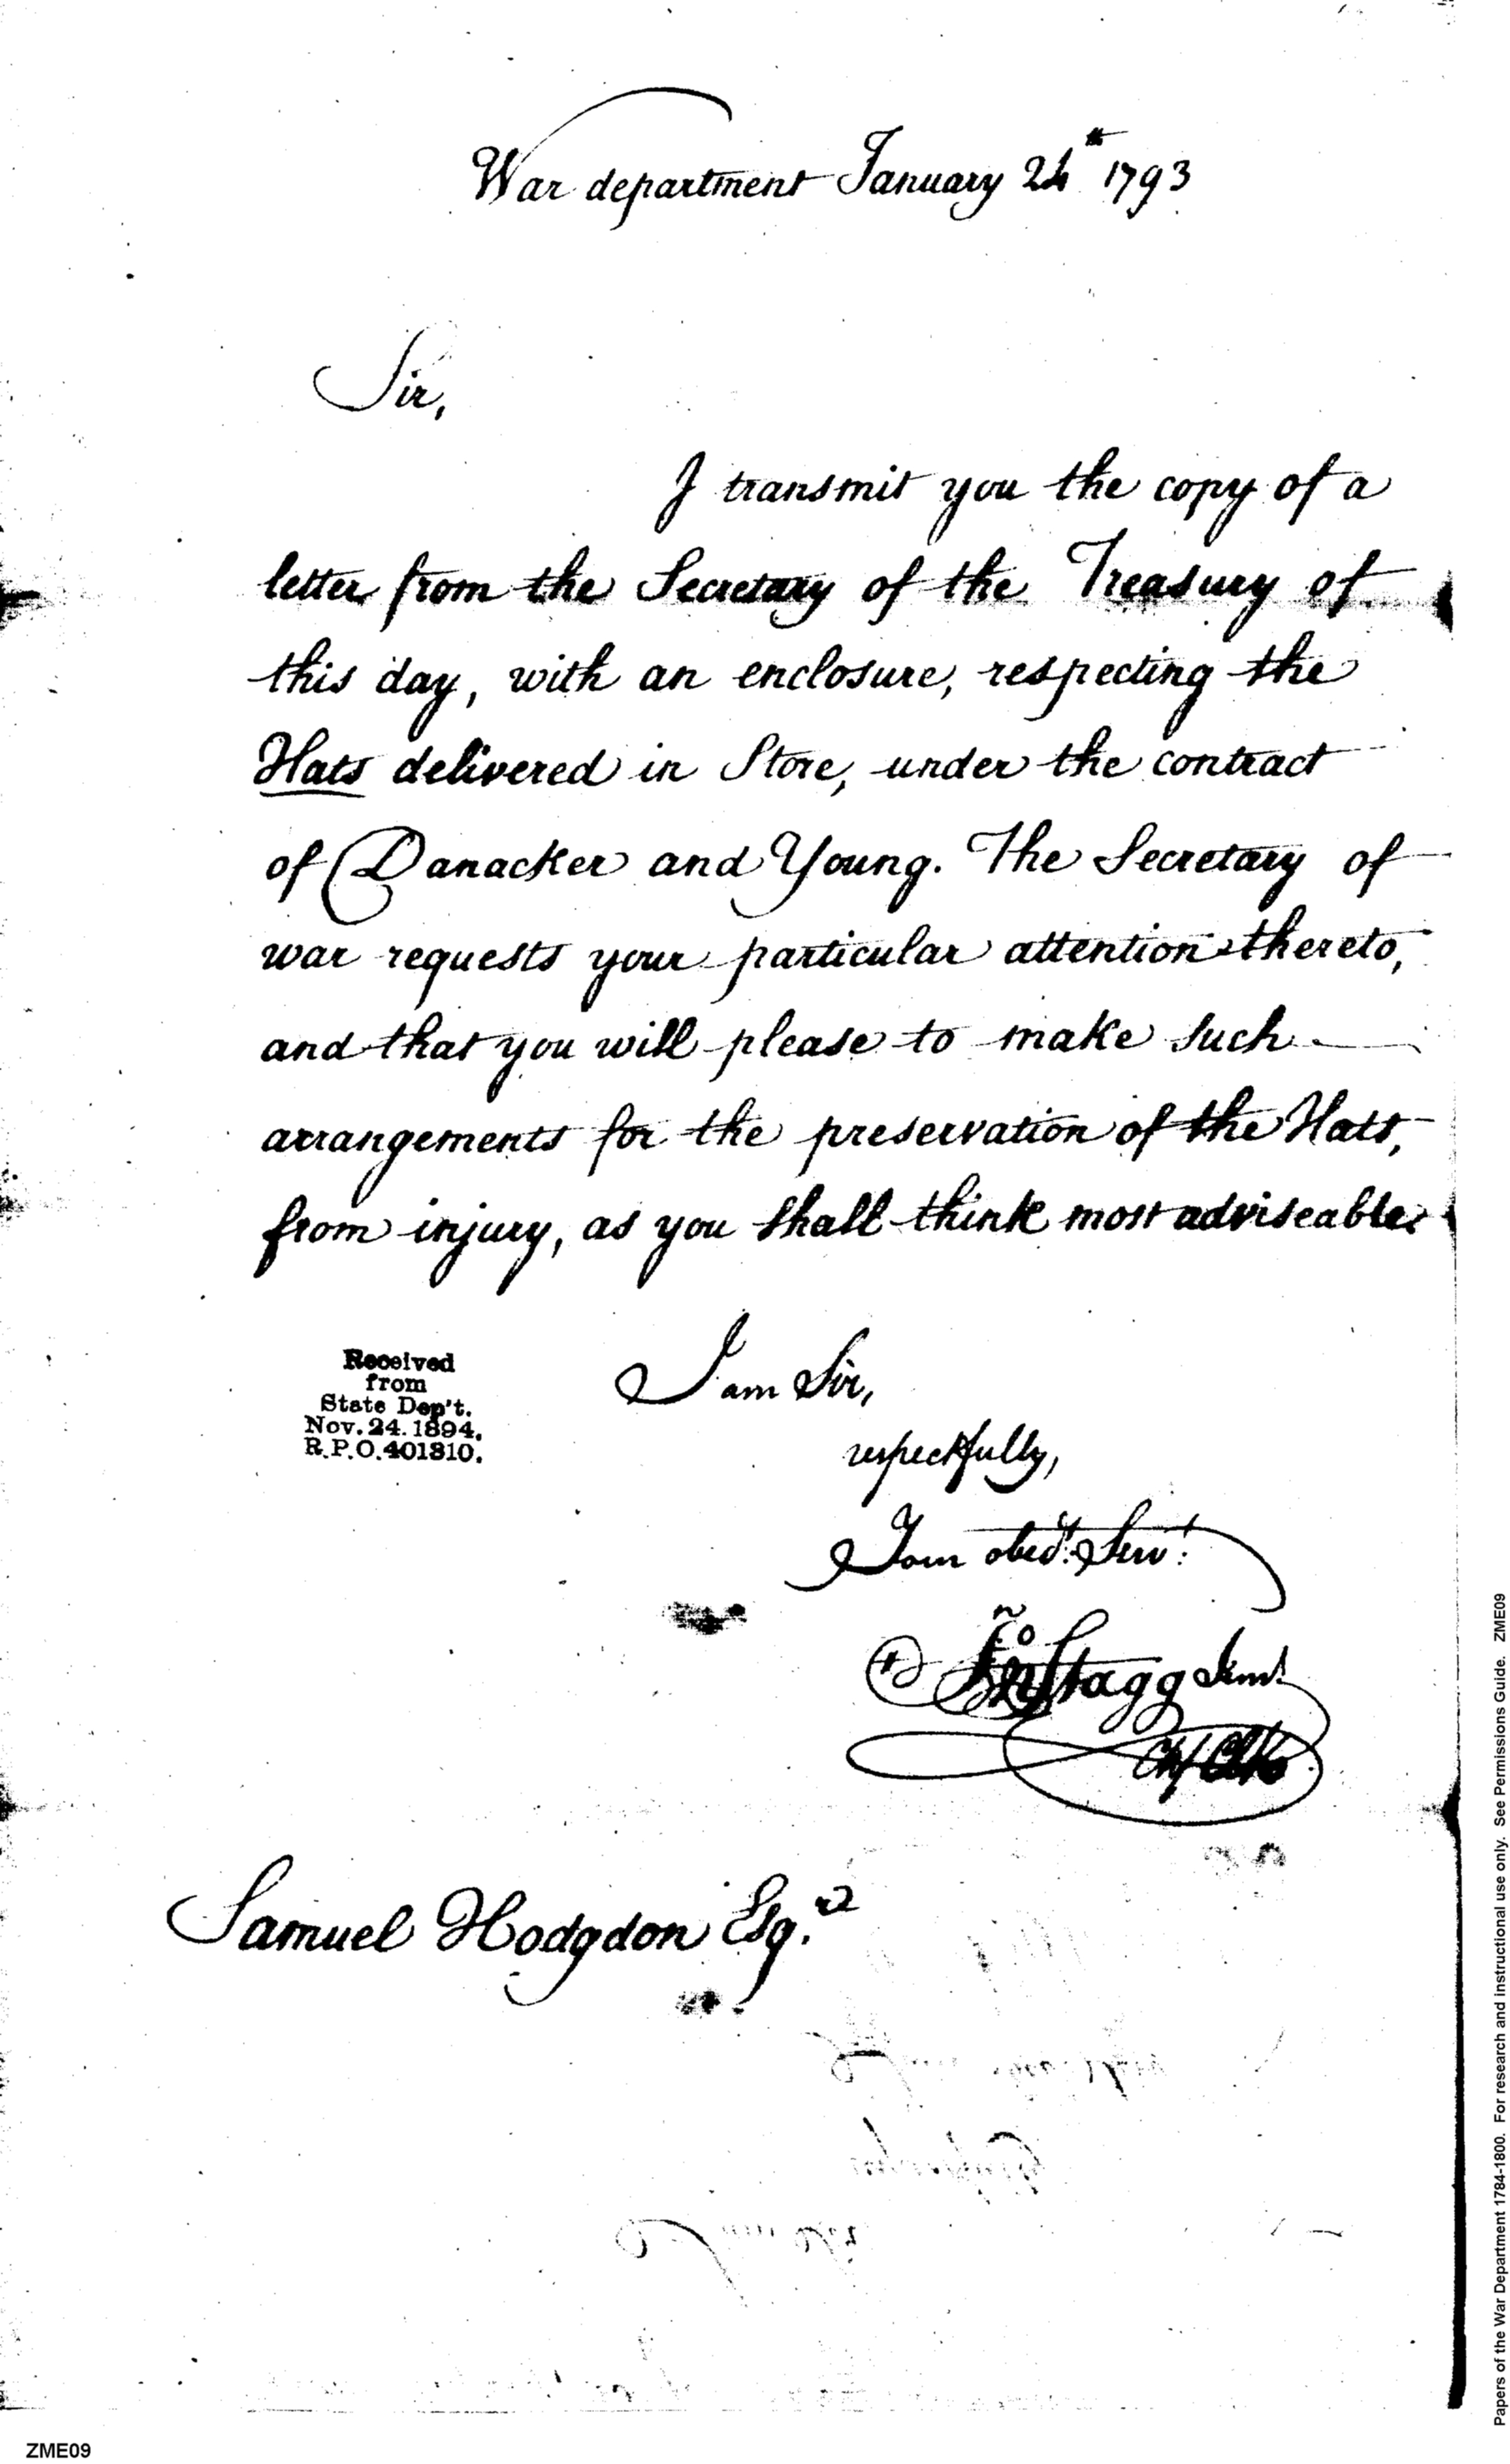 War department January 24th 1793
Sir,
I transmit you the copy of a
letter from the Secretary of the Treasury of
this day, with an enclosure, respecting the
Hats delivered in Store, under the contract
of Danacker and Young. The Secretary of
war requests your particular attention thereto,
and that you will please to make such
arrangements for the preservation of the Hats,
from injury, as you shall think most adviseable.
I am Sir,
respectfully,
Your obedt. Servt.
Jno Stagg Junr.
Chf Clk
Received
from
State Dep't.
Nov. 24. 1894.
R.P.O. 401310.
Samuel Hodgdon Esq.r
Papers of the War Department 1784-1800. For research and instructional use only. See Permissions Guide. ZME09
ZME09